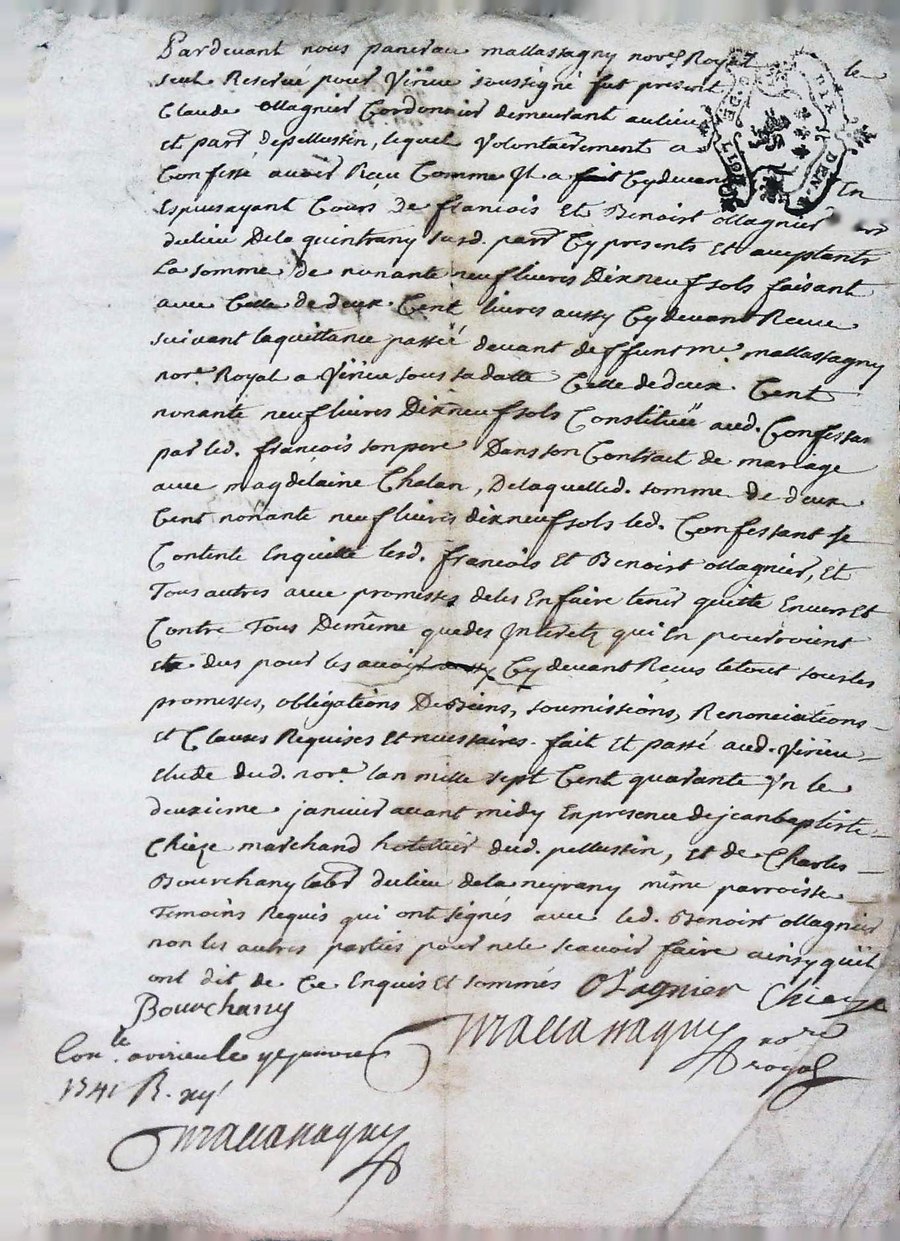 Pardevant nous pancrau mallassagny nore. Royal le
seul Reservé pour Virieu soussigné fut present
Claude Ollagnier Cordonnier demeurant aulieu
et parr. depellussin, lequel Volontairement a
Confessé avoir Recu Comme Il a fait Cydevant En
Especesayant Cours De francois Et Benoist Ollagnier
dulieu Dela quintrany susd. parr. Cy presents Et acceptants
La somme de nonante neuf livres Dixneuf sols faisant
avec Celle de deux Cent livres aussy Cydevant Recue
suivant laquittance passéé devant deffunt me. mallassagny
nore. Royal a Virieu sous sadatte Celle dedeux Cent
nonante neuf livres Dixneuf sols Constituéé aud. Confessant
par led. francois son pere Dans son Contract de mariage
avec magdelaine Chalan, Delaquelled. somme de deux
Cent nonante neuf livres dixneuf sols led. Confessant se
Contente Enquitte lesd. francois Et Benoist Ollagnier, Et
Tous autres avec promesses deles Enfaire tenir quitte Envers Et
Contre Tous De même quedes Interets qui En pourroient
etre dus pour les avoir Cy devant Recus letout sous les
promesses, obligations De Biens, soumissions, Renonciations
et Clauses Requises Et necessaires. fait Et passé aud. Virieu
etude dud. nore. lan mille sept Cent quarante Vn le
deuxieme janvier avant midy En presence de jean baptiste
Chieze marchand hotellier dud. pellussin, Et de Charles
Bourchany labr. dulieu dela neyrany même parroisse
Temoins Requis qui ont signés avec led. Benoist Ollagnier
non les autres parties pour nele scavoir faire ainsy quil
ont dit de Ce Enquis Et sommés Olagnier Chieze
Bourchany
Mallassagny nore royal
Con.le avirieu le janvier
1741 R. xij s
Mallassagny